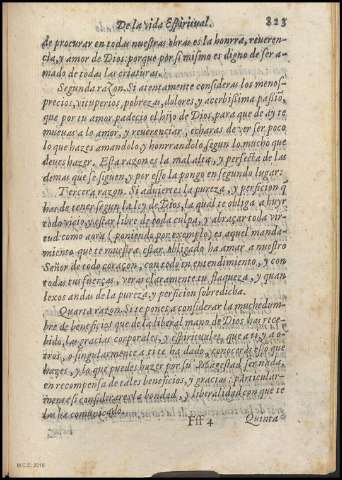 De la vida Espiritual. 823
de procurar en todas nuestras obras es la honrra, reueren-
cia, y amor de Dios: porque por si mismo es digno de ser a-
mado de todas las criaturas.
Segunda razon. Si atentamente consideras los menos-
precios, vituperios, pobreza, dolores, y acerbissima passiõ,
que por tu amor padecio el hijo de Dios, para que de ay te
mueuas a lo amar, y reuerenciar, echaras de ver ser poco
lo que hazes amandolo, y honrrandolo, segun lo mucho que
deues hazer. Esta razon es la mas alta, y perfecta de las
demas que se siguen, y por esso la pongo en segundo lugar.
Tercera razon. Si aduiertes la pureza, y perficion q̃
has de tener segun la ley de Dios, la qual te obliga a huyr
todo vicio, y estar libre de toda culpa, y abraçar toda vir-
tud como aora (poniendo por exemplo) a aquel manda-
miento que te muestra estar obligado ha amar a nuestro
Señor de todo coraçon, con todo tu entendimiento, y con
todas tus fuerças, veras claramente tu flaqueza, y quan
lexos andas de la pureza, y perficion sobredicha.
Quarta razon. Si te pones a considerar la muchedum-
bre de beneficios que de la liberal mano de Dios has rece-
bido, las gracias corporales, y espirituales, que a ti, y a o-
tros, o singularmente a ti te ha dado, conoceras ser lo que
hazes, y lo que puedes hazer por su Magestad ser nada,
en recompensa de tales beneficios, y gracias: particular-
mente si consideares la bondad, y liberalidad con que te
las ha comunicado.
Fff 4 Quinta
M.C.D. 2016